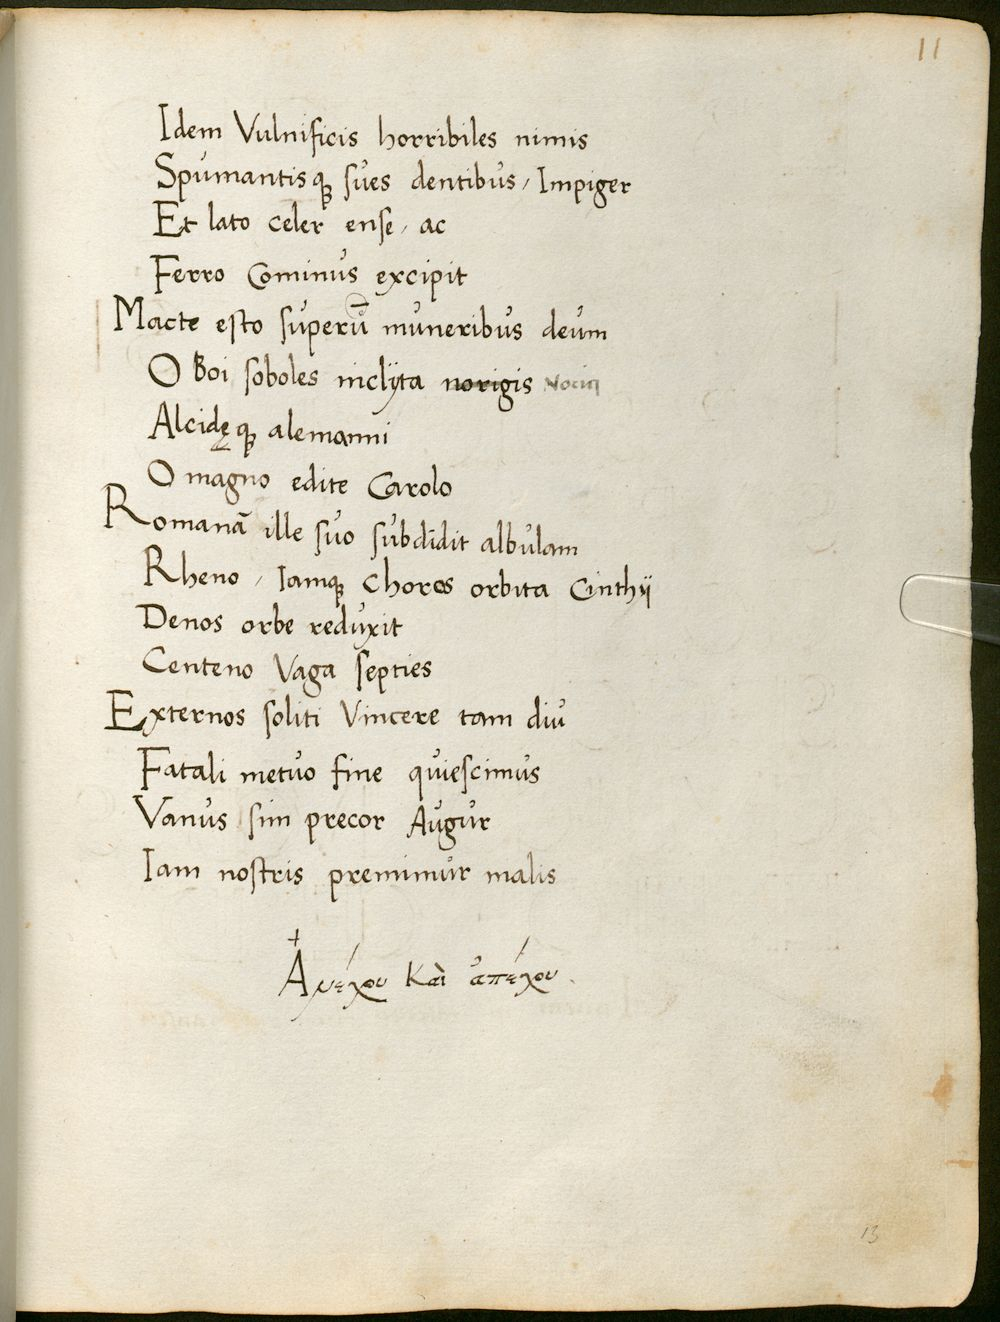 11
Idem Vulnificis horribiles nimis
Spumantisqꝫ sues dentibus, Impiger
Et lato celer ense, ac
Ferro Cominus excipit
Macte esto superū muneribus deum
O Boi soboles inclÿta norigis
Alcidęqꝫ alemanni
O magno edite Carolo
Romanā ille suo subdidit albulam
Rheno, Iamqꝫ Choros orbita Cinthÿ
Denos orbe reduxit
Centeno Vaga septies
Externos soliti Vincere tam diu
Fatali metuo fine quiescimus
Vanus sim precor Augur
Iam nostris premimur malis
Ἀνέχου καὶ ἀπέχου.
13